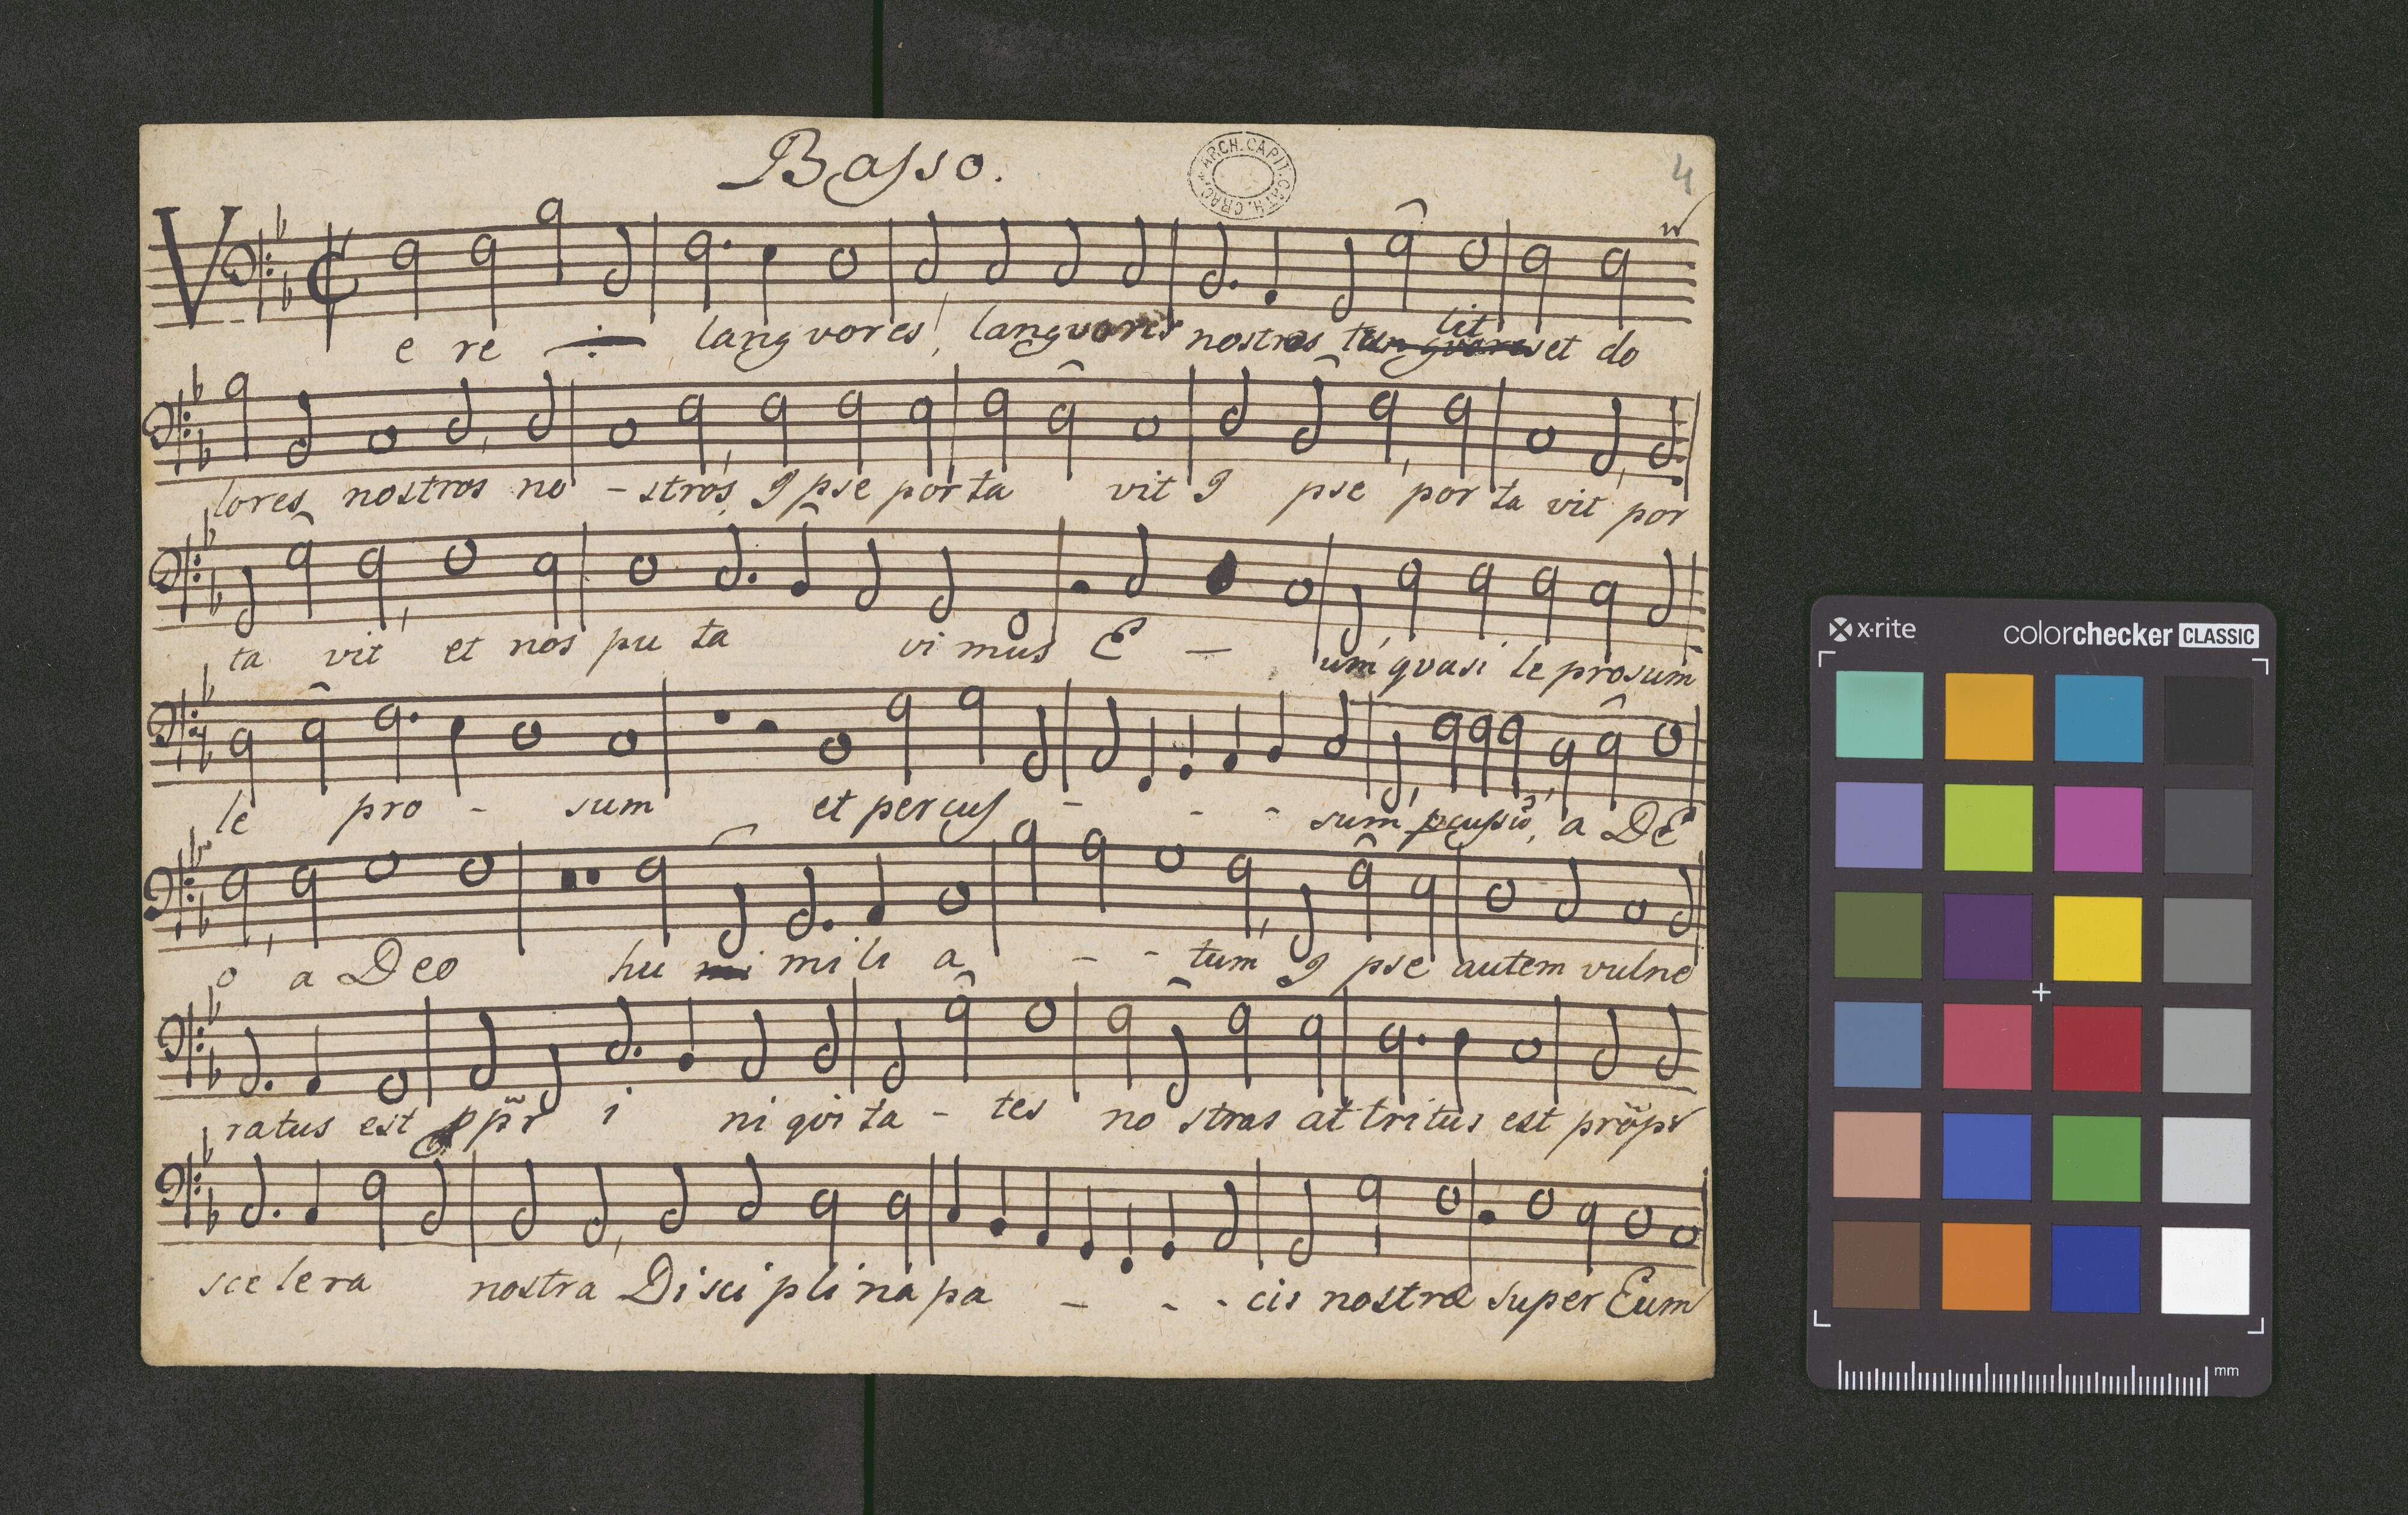 Basso.
ARCH. CAPIT. CATH. CRAC.
4
V e re ÷ langvores, langvores nostros tulit et do
lores nostros no - stros, Ipse porta vit I pse por ta vit por
ta vit et nos pu ta vi mus E - um quasi le prosum
le pro - sum et percus - - - sum pcussũ, a DE
o, a Deo hu mi li a - - tum I pse autem vulne
ratus est ppr̃ i ni qvi ta - tes no stras at tritus est pro͂pr
scelera nostra Disciplina pa - - - cis nostræ super Eum
x-rite colorchecker CLASSIC
mm